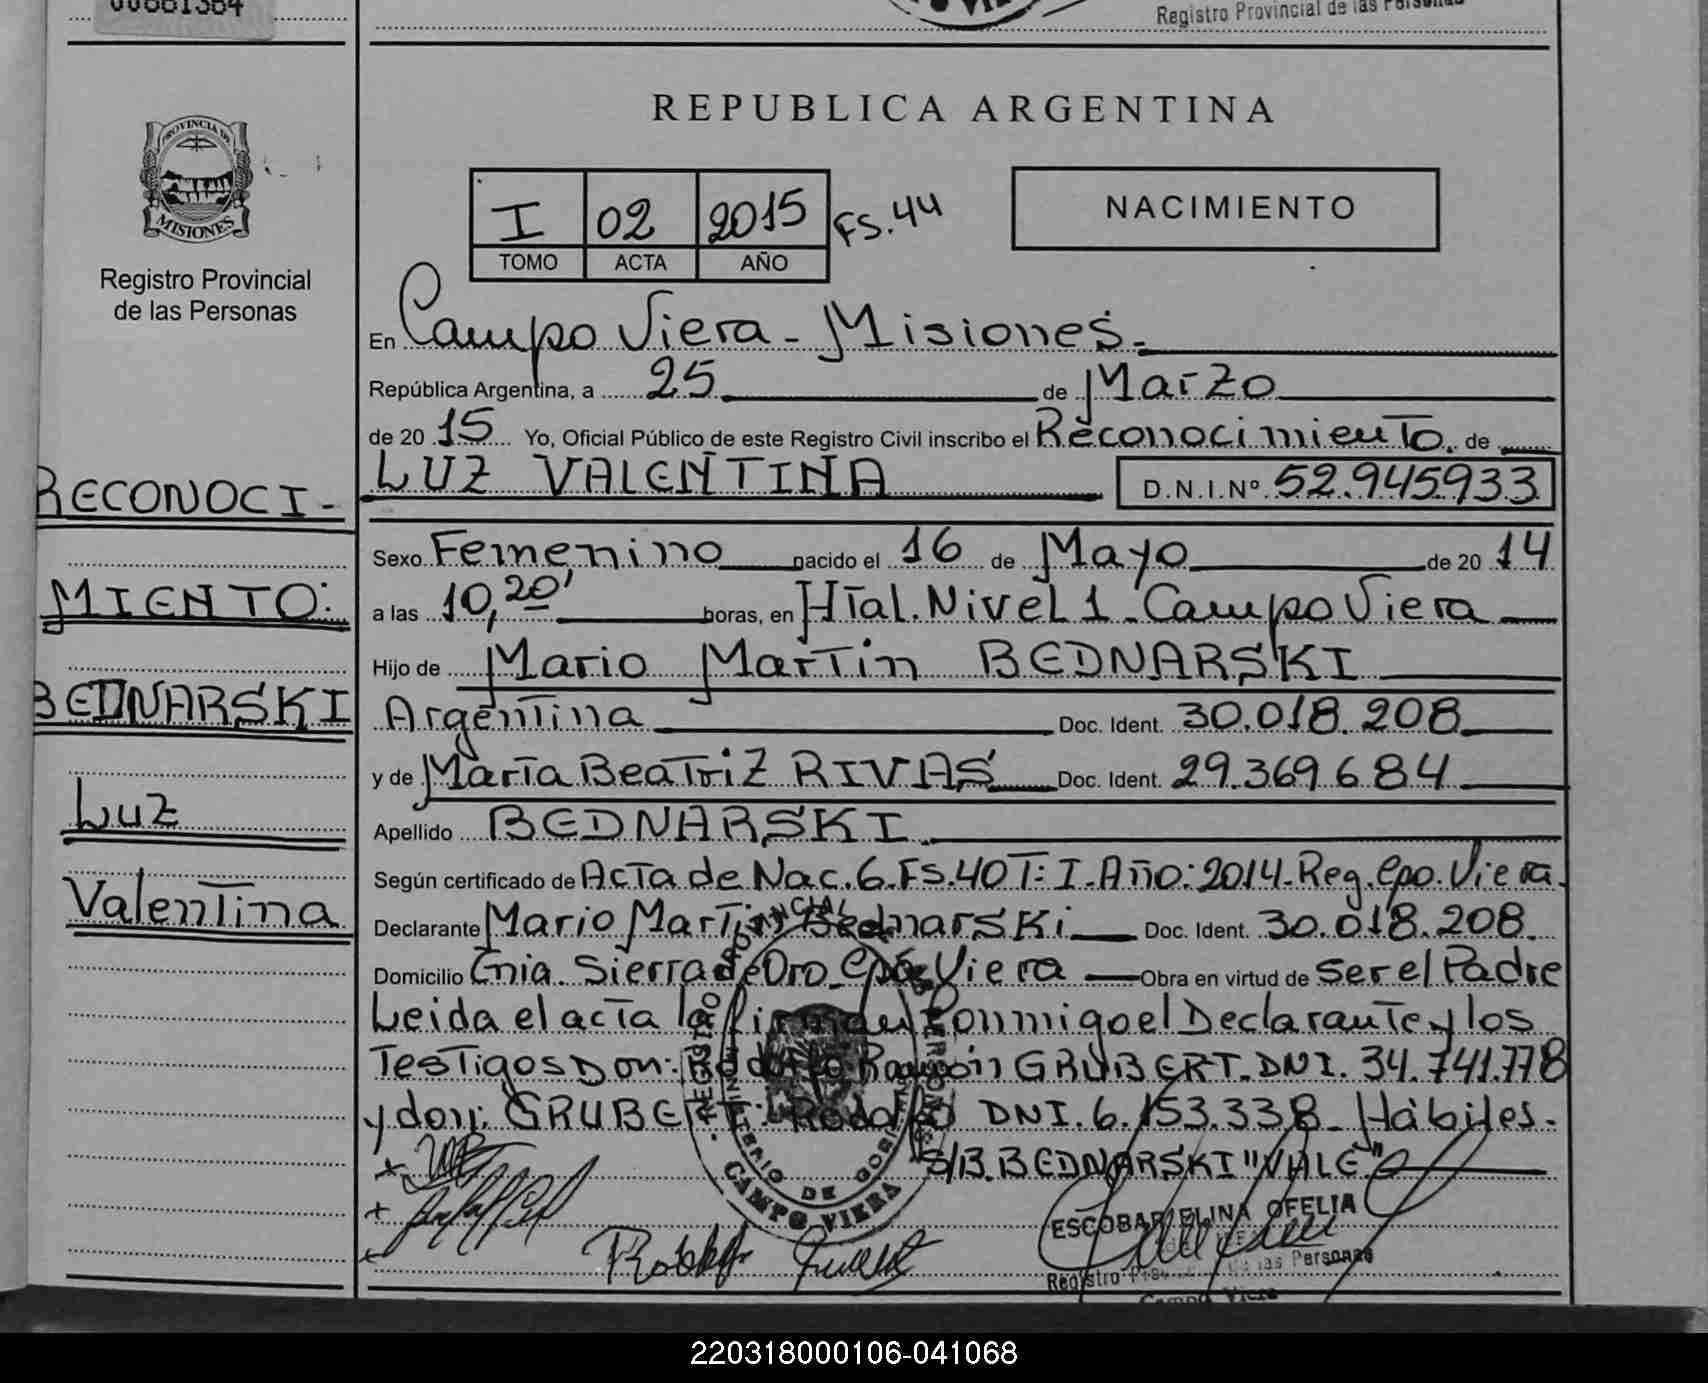 00881384
Registro Provincial de las Personas
PROVINCIA DE
MISIONES
Registro Provincial
de las Personas
RECONOCI-
MIENTO:
BEDNARSKI
Luz
Valentina
REPUBLICA ARGENTINA
I 02 2015 FS.44
TOMO ACTA AÑO
NACIMIENTO
En Campo Viera - Misiones.-
República Argentina, a 25 de Marzo
de 20 15 Yo, Oficial Público de este Registro Civil inscribo el Reconocimiento. de
LUZ VALENTINA D.N.I.Nº 52.945.933
Sexo Femenino nacido el 16 de Mayo de 20 14
a las 10,20' horas, en HTal. Nivel 1 - Campo Viera
Hijo de Mario Martin BEDNARSKI
Argentina Doc. Ident. 30.018.208
y de María Beatriz RIVAS Doc. Ident. 29.369.684
Apellido BEDNARSKI
Según certificado de Acta de Nac. 6. Fs. 40 T: I. Año: 2014. Reg. Cpo. Viera.
Declarante Mario Martin Bednarski Doc. Ident. 30.018.208
Domicilio Cnia. Sierra de Oro - Cpo. Viera Obra en virtud de Ser el Padre
Leida el acta la firman conmigo el Declarante y los
Testigos Don: Rodolfo Ramón GRUBERT. DNI. 34.741.778
y don: GRUBERT: Rodolfo DNI. 6.153.338 - Hábiles.-
S/B. BEDNARSKI "VALE"
CAMPO VIERA
ESCOBAR ELINA OFELIA
Registro de las Personas
Campo Viera
220318000106-041068